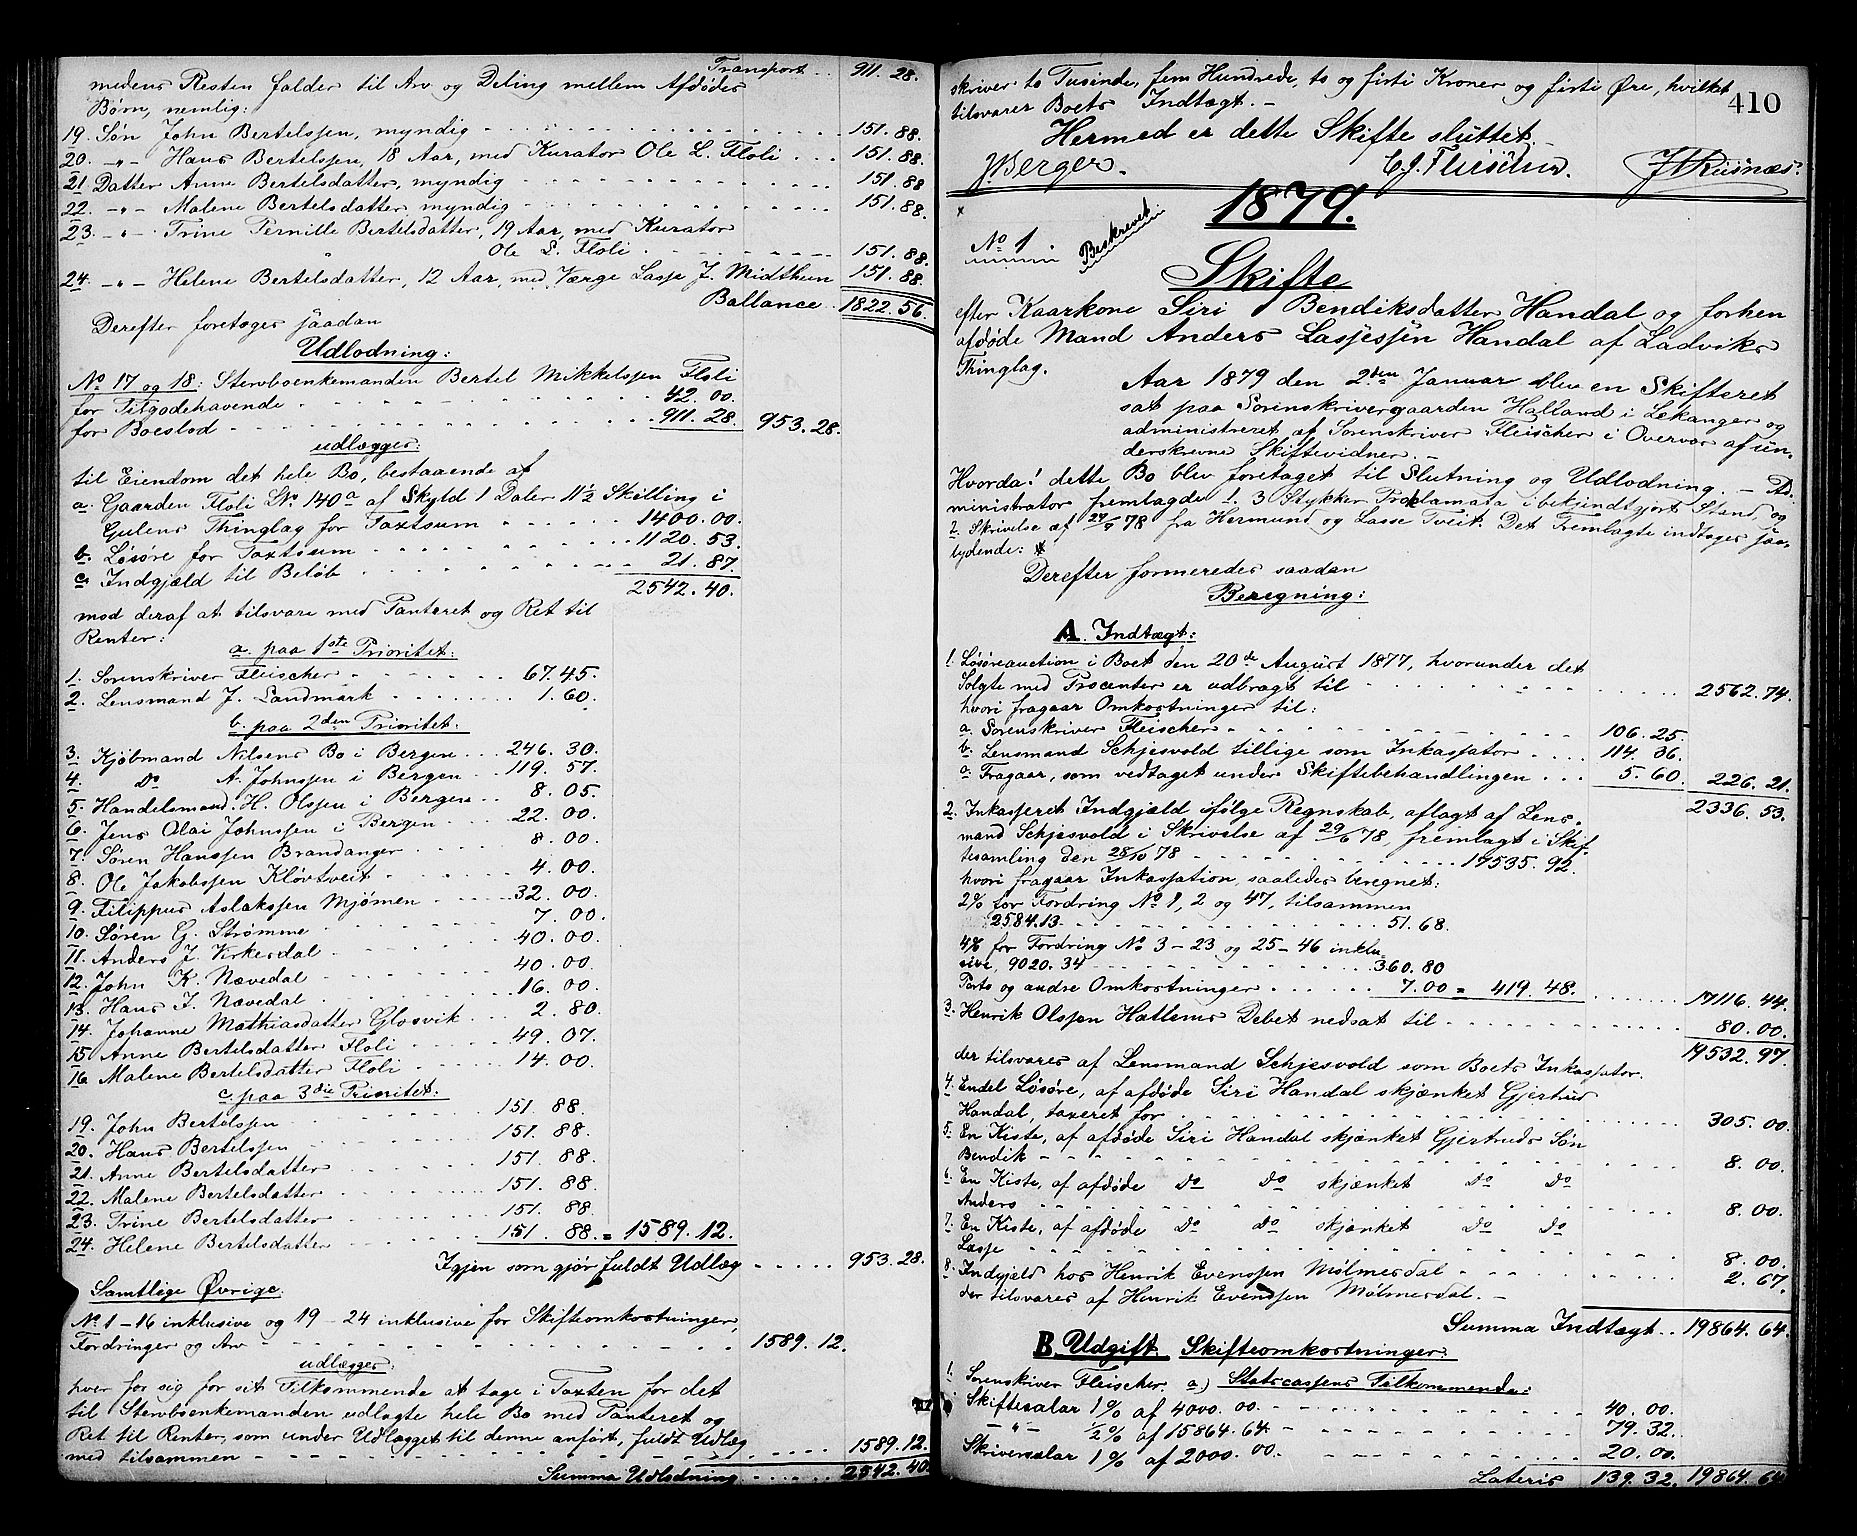 Transport . . 911. 28.
medens Resten falder til Arv og Deling mellem Afdødes
Børn, nemlig:
19. Søn John Bertelssen, myndig 151. 88.
20. -"- Hans Bertelssen, 18 Aar, med Kurator Ole L. Floli . . . 151. 88.
21 Datter Anne Bertelsdatter, myndig 151. 88
22. -"- Malene Bertelsdatter myndig 151. 88.
23. -"- Trine Pernille Bertelsdatter, 19 Aar, med Kurator
Ole L. Floli 151. 88.
24. -"- Helene Bertelsdatter, 12 Aar, med Værge Lasse J. Midthun 151. 88.
Ballance . 1822. 56.
Derefter foretages saadan
Udlodning:
No 17 og 18: Stervboenkemanden Bertel Mikkelssen Floli
for Tilgodehavende 42. 00.
for Boeslod 911. 28. 953. 28.
udlægges:
til Eiendom det hele Bo, bestaaende af
a. Gaarden Floli LNr. 140a af Skyld 1 Daler 11½ Skilling i
Gulens Thinglag for Taxtsum 1400. 00.
b. Løsøre for Taxtsum 1120. 53.
c. Indgjæld til Beløb 21. 87.
2542. 40.
mod deraf at tilsvare med Panteret og Ret til
Renter:
a. paa 1ste Prioritet:
1. Sorenskriver Fleischer 67. 45.
2. Lensmand J. Landmark 1. 60.
b. paa 2den Prioritet:
3. Kjøbmand Nilsens Bo i Bergen . . . 246. 30.
4. Do A. Johnssen i Bergen . . 119. 57.
5. Handelsmand H. Olssen i Bergen . . 8. 05.
6. Jens Olai Johnssen i Bergen 22. 00.
7. Søren Hanssen Brandanger 8. 00.
8. Ole Jakobssen Kløvtveit 4. 00.
9. Filippus Aslakssen Mjømen 32. 00.
10. Søren G. Strømme 7. 00.
11. Anders J. Virkesdal 40. 00.
12. John K. Nævedal 40. 00.
13. Hans J. Nævedal 16. 00.
14. Johanne Mathiasdatter Glosvik . . . 2. 80.
15 Anne Bertelsdatter Floli 49. 07.
16 Malene Bertelsdatter Floli 14. 00.
c. paa 3die Prioritet:
19. John Bertelssen 151. 88.
20. Hans Bertelssen 151. 88.
21. Anne Bertelsdatter 151. 88.
22. Malene Bertelsdatter 151. 88.
23. Trine Bertelsdatter 151. 88.
24. Helene Bertelsdatter 151. 88. = 1589. 12.
Igjen som gjør fuldt Udlæg 953. 28.
Samtlige Øvrige:
No 1 - 16 inklusive og 19 - 24 inklusive for Skifteomkostninger,
Fordringer og Arv 1589. 12.
udlægges:
hver for sig for sit Tilkommende at tage i Taxten for det
til Stervboenkemanden udlagte hele Bo med Panteret og
Ret til Renter, som under Udlægget til denne anført, fuldt Udlæg
med tilsammen 1589. 12.
Summa Udlodning 2542. 40.
410
skriver to Tusinde, fem Hundrede, to og firti Kroner og firti Øre, hvilket
tilsvarer Boets Indtægt. -
Hermed er dette Skifte sluttet. -
J Berger. C. J. Fleischer.
1879.
No 1. Beskrevet.
Skifte
efter Kaarkone Siri Bendiksdatter Handal og forhen
afdøde Mand Anders Lassessen Handal af Ladviks
Thinglag.
Aar 1879 den 2den Januar blev en Skifteret
sat paa Sorenskrivergaarden Halland i Lekanger og
administreret af Sorenskriver Fleischer i Overvær af un-
derskrevne Skiftevidner. -
Hvorda! dette Bo blev foretaget til Slutning og Udlodning. - Ad-
ministrator fremlagde 1. 3 Stykker Proklamata i bekjendtgjort Stand, og
2. Skrivelse af 78 fra Hermund og Lasse Tveit. Det Fremlagte indtages saa-
lydende: *
Derefter formeredes saadan
Beregning:
A. Indtægt:
1. Løsøreauction i Boet den 20de August 1877, hvorunder det
Solgte med Procenter er udbragt til 2562. 74.
hvori fragaar Omkostninger til:
a. Sorenskriver Fleischer 106. 25.
b. Lensmand Schjesvold tillige som Inkassator . . . 114. 36.
c. Fragaar, som vedtaget under Skiftebehandlingen . . . 5. 60. 226. 21.
2336. 53.
2. Inkasseret Indgjæld ifølge Regnskab, aflagt af Lens-
mand Schjesvold i Skrivelse af 29/6 78, fremlagt i Skif-
tesamling den 28/10 78 17535. 92.
hvori fragaar Inkassation, saaledes beregnet:
2% for Fordring No 1, 2 og 47, tilsammen
2584. 13 51. 68.
4% for Fordring No 3 - 23 og 25 - 46 inklu-
sive, 9020. 34 360. 80
Porto og andre Omkostninger 7. 00 = 419. 48. 17116. 44.
3. Henrik Olssen Hatlems Debet nedsat til 80. 00.
19532. 97.
der tilsvares af Lensmand Schjesvold som Boets Inkassator.
4. Endel Løsøre, af afdøde Siri Handal skjænket Gjertrud
Handal, taxeret for 305. 00.
5. En Kiste, af afdøde Siri Handal skjænket Gjertruds Søn
Bendik 8. 00.
6. En Kiste, af afdøde Do Do skjænket Do Do
Anders 8. 00.
7. En Kiste, af afdøde Do Do skjænket Do Do
Lasse 8. 00.
8. Indgjæld hos Henrik Evenssen Mølmesdal 2. 67.
der tilsvares af Henrik Evenssen Mølmesdal. -
Summa Indtægt . . 19864. 64.
B. Udgift. Skifteomkostninger:
1. Sorenskriver Fleischer. a) Statscassens Tilkommende:
Skiftesalar 1% af 4000. 00. 40. 00.
-"- ½% af 15864. 64. 79. 32.
Skriversalar 1% af 2000. 00. 20. 00.
Lateris 139. 32. 19864. 64